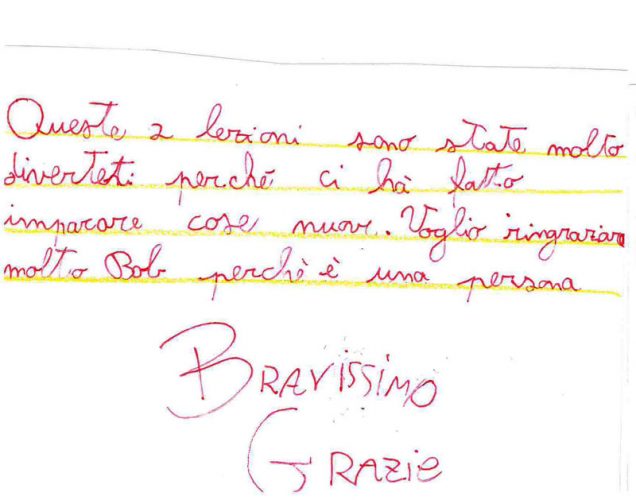 Queste 2 lezioni sono state molto
diverteti perché ci hà fatto
imparare cose nuove. Voglio ringraziare
molto Bob perchè è una persona
BRAVISSIMO
GRAZIE